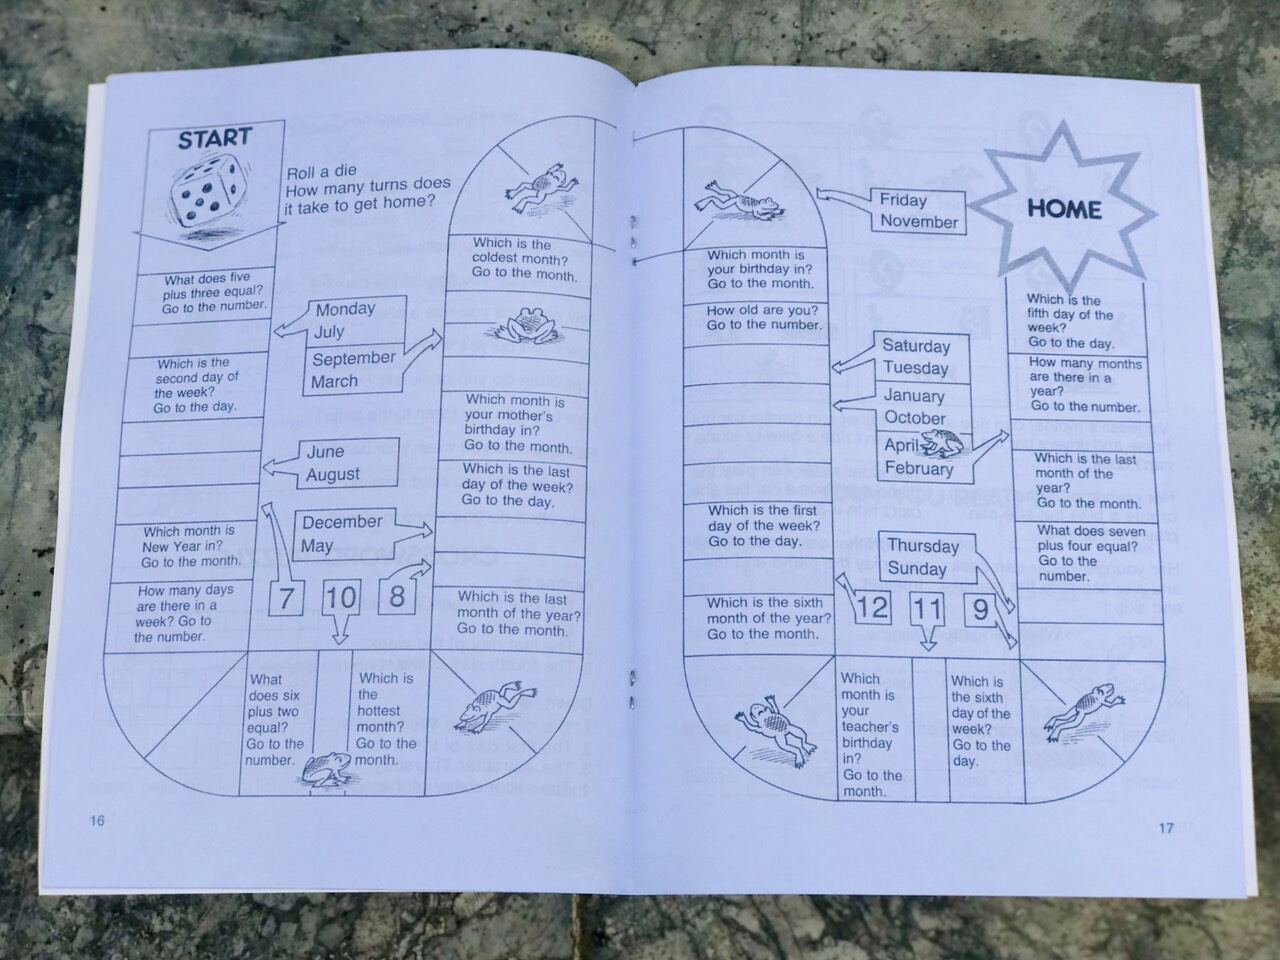 START
Roll a die
How many turns does
it take to get home?
What does five
plus three equal?
Go to the number.
Which is the
second day of
the week?
Go to the day.
Which month is
New Year in?
Go to the month.
How many days
are there in a
week? Go to
the number.
Monday
July
September
March
June
August
December
May
7
10
8
What
does six
plus two
equal?
Go to the
number.
Which is
the
hottest
month?
Go to the
month.
Which is the
coldest month?
Go to the month.
Which month is
your mother's
birthday in?
Go to the month.
Which is the last
day of the week?
Go to the day.
Which is the last
month of the year?
Go to the month.
16
Which month is
your birthday in?
Go to the month.
How old are you?
Go to the number.
Which is the first
day of the week?
Go to the day.
Which is the sixth
month of the year?
Go to the month.
Friday
November
Saturday
Tuesday
January
October
April
February
Thursday
Sunday
12
11
9
Which
month is
your
teacher's
birthday
in?
Go to the
month.
Which is
the sixth
day of the
week?
Go to the
day.
HOME
Which is the
fifth day of the
week?
Go to the day.
How many months
are there in a
year?
Go to the number.
Which is the last
month of the
year?
Go to the month.
What does seven
plus four equal?
Go to the
number.
17